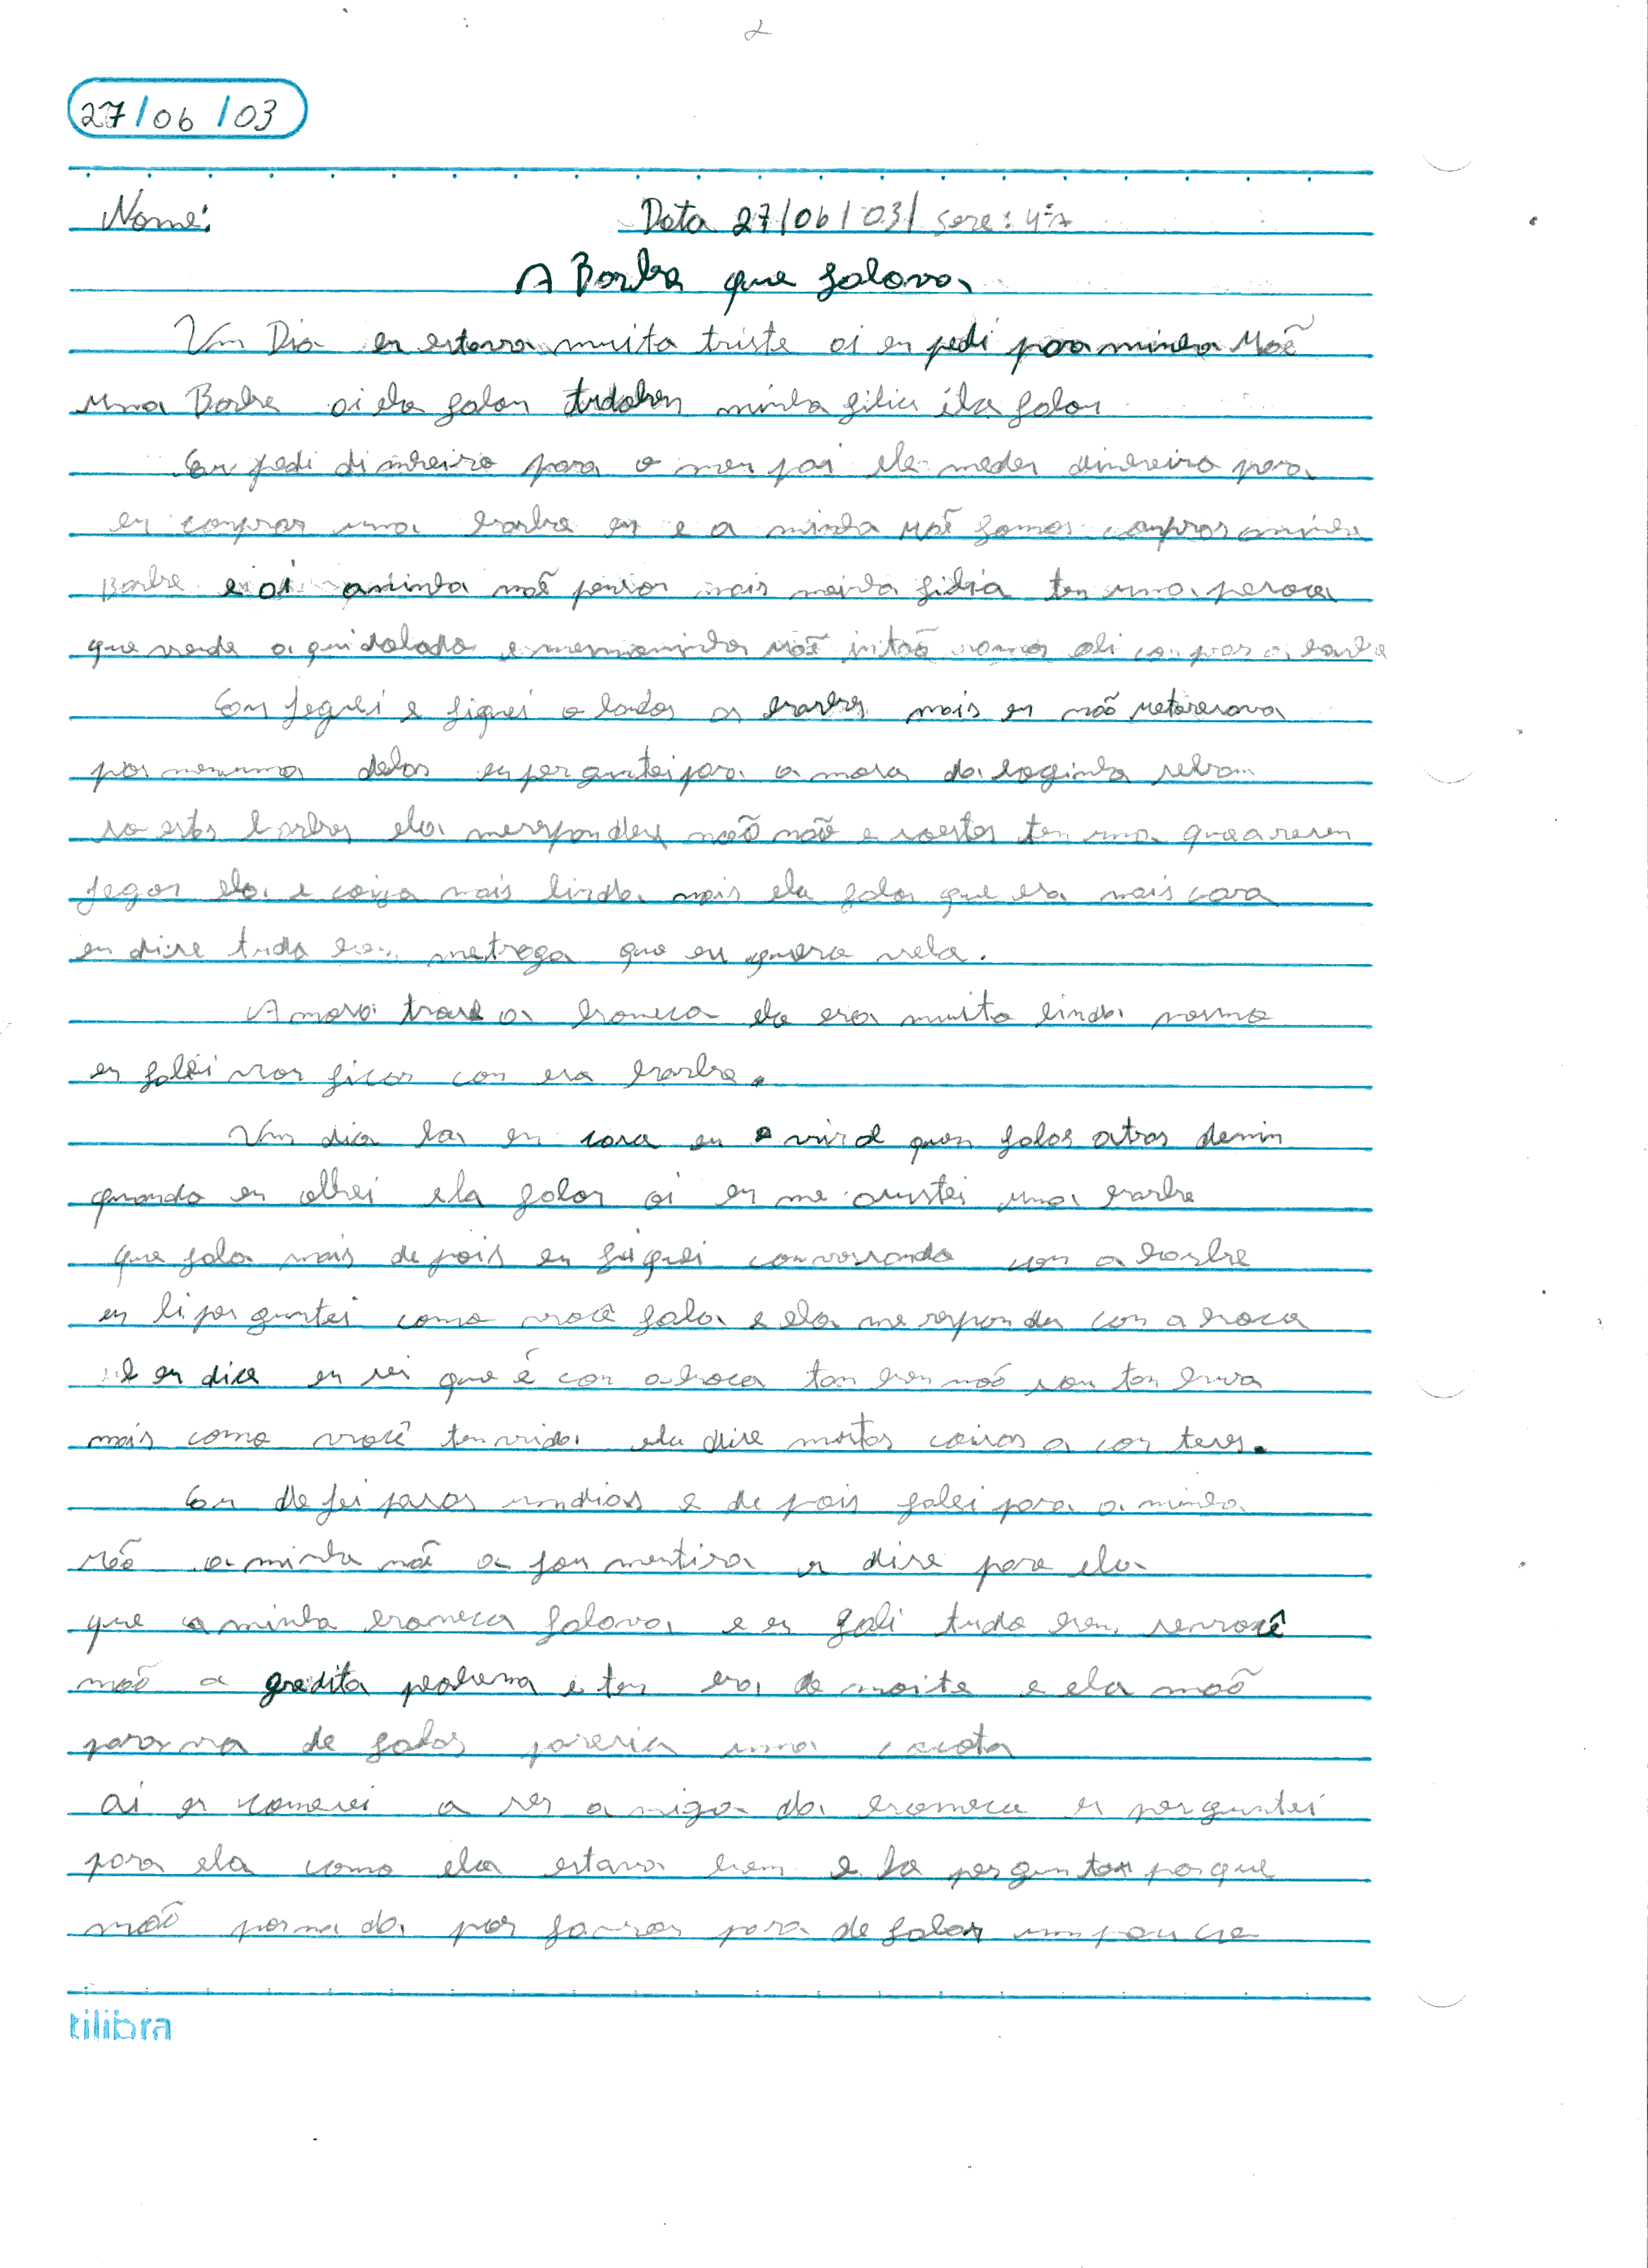 2
27/06/03
Nome: Data 27/06/03/ sere: 4ªA
A Barbe que falava
Um Dia eu estava muita triste ai eu pedi para minha Mãe
uma Barbe ai ela falou tudobem minha filia ela falou
Eu pedi dinheiro para o meu pai ele medeu dinheiro para
eu conprar uma barbe eu e a minha mãe fomos conprar aminha
Barbe e ai aminha mãe pensou mais minha filia ten uma pesoa
que vende a qui dolado e mesmo minha Mãe intão vamos ali conprar a barbe
Eu feguei e fiquei o landos as barbes mais eu não
por nenuma delas eu pergunteipara a mosa da loginha
so estas barbes ela merespondeu não não e soestas ten uma que a resen
fegou ela e coiza mais linda mais ela falou que era mais cara
eu dise tudo bem metroga que eu quero vela.
A mosa trose a boneca ela era muito linda
eu falei vou ficar con esa barbe.
Um dia lar en casa eu ovi al quen falar atras demin
quando eu olhei ela falou ai eu me asustei uma barbe
que fala mais de pois eu fiquei conversando con a barbe
eu li per guntei como você fala e ela me respondeu con a boca
e eu dice eu sei que é con aboca tan ben não sou ton bura
mais como você tenvida ela dise muitas coisas a con teseu.
Eu de fei pasar undias e de pois falei para a minha
Mãe a minha mãe a fou mentira eu dise para ela
que a minha boneca falava e eu fali tudo ben se você
não a gredita poblema e teu era de noite e ela não
parava de falar paresia uma
ai eu comesei a ser amiga da boneca eu perguntei
para ela como ela estava bem e la perguntou porque
não por favor para de falar um pou co
tilibra